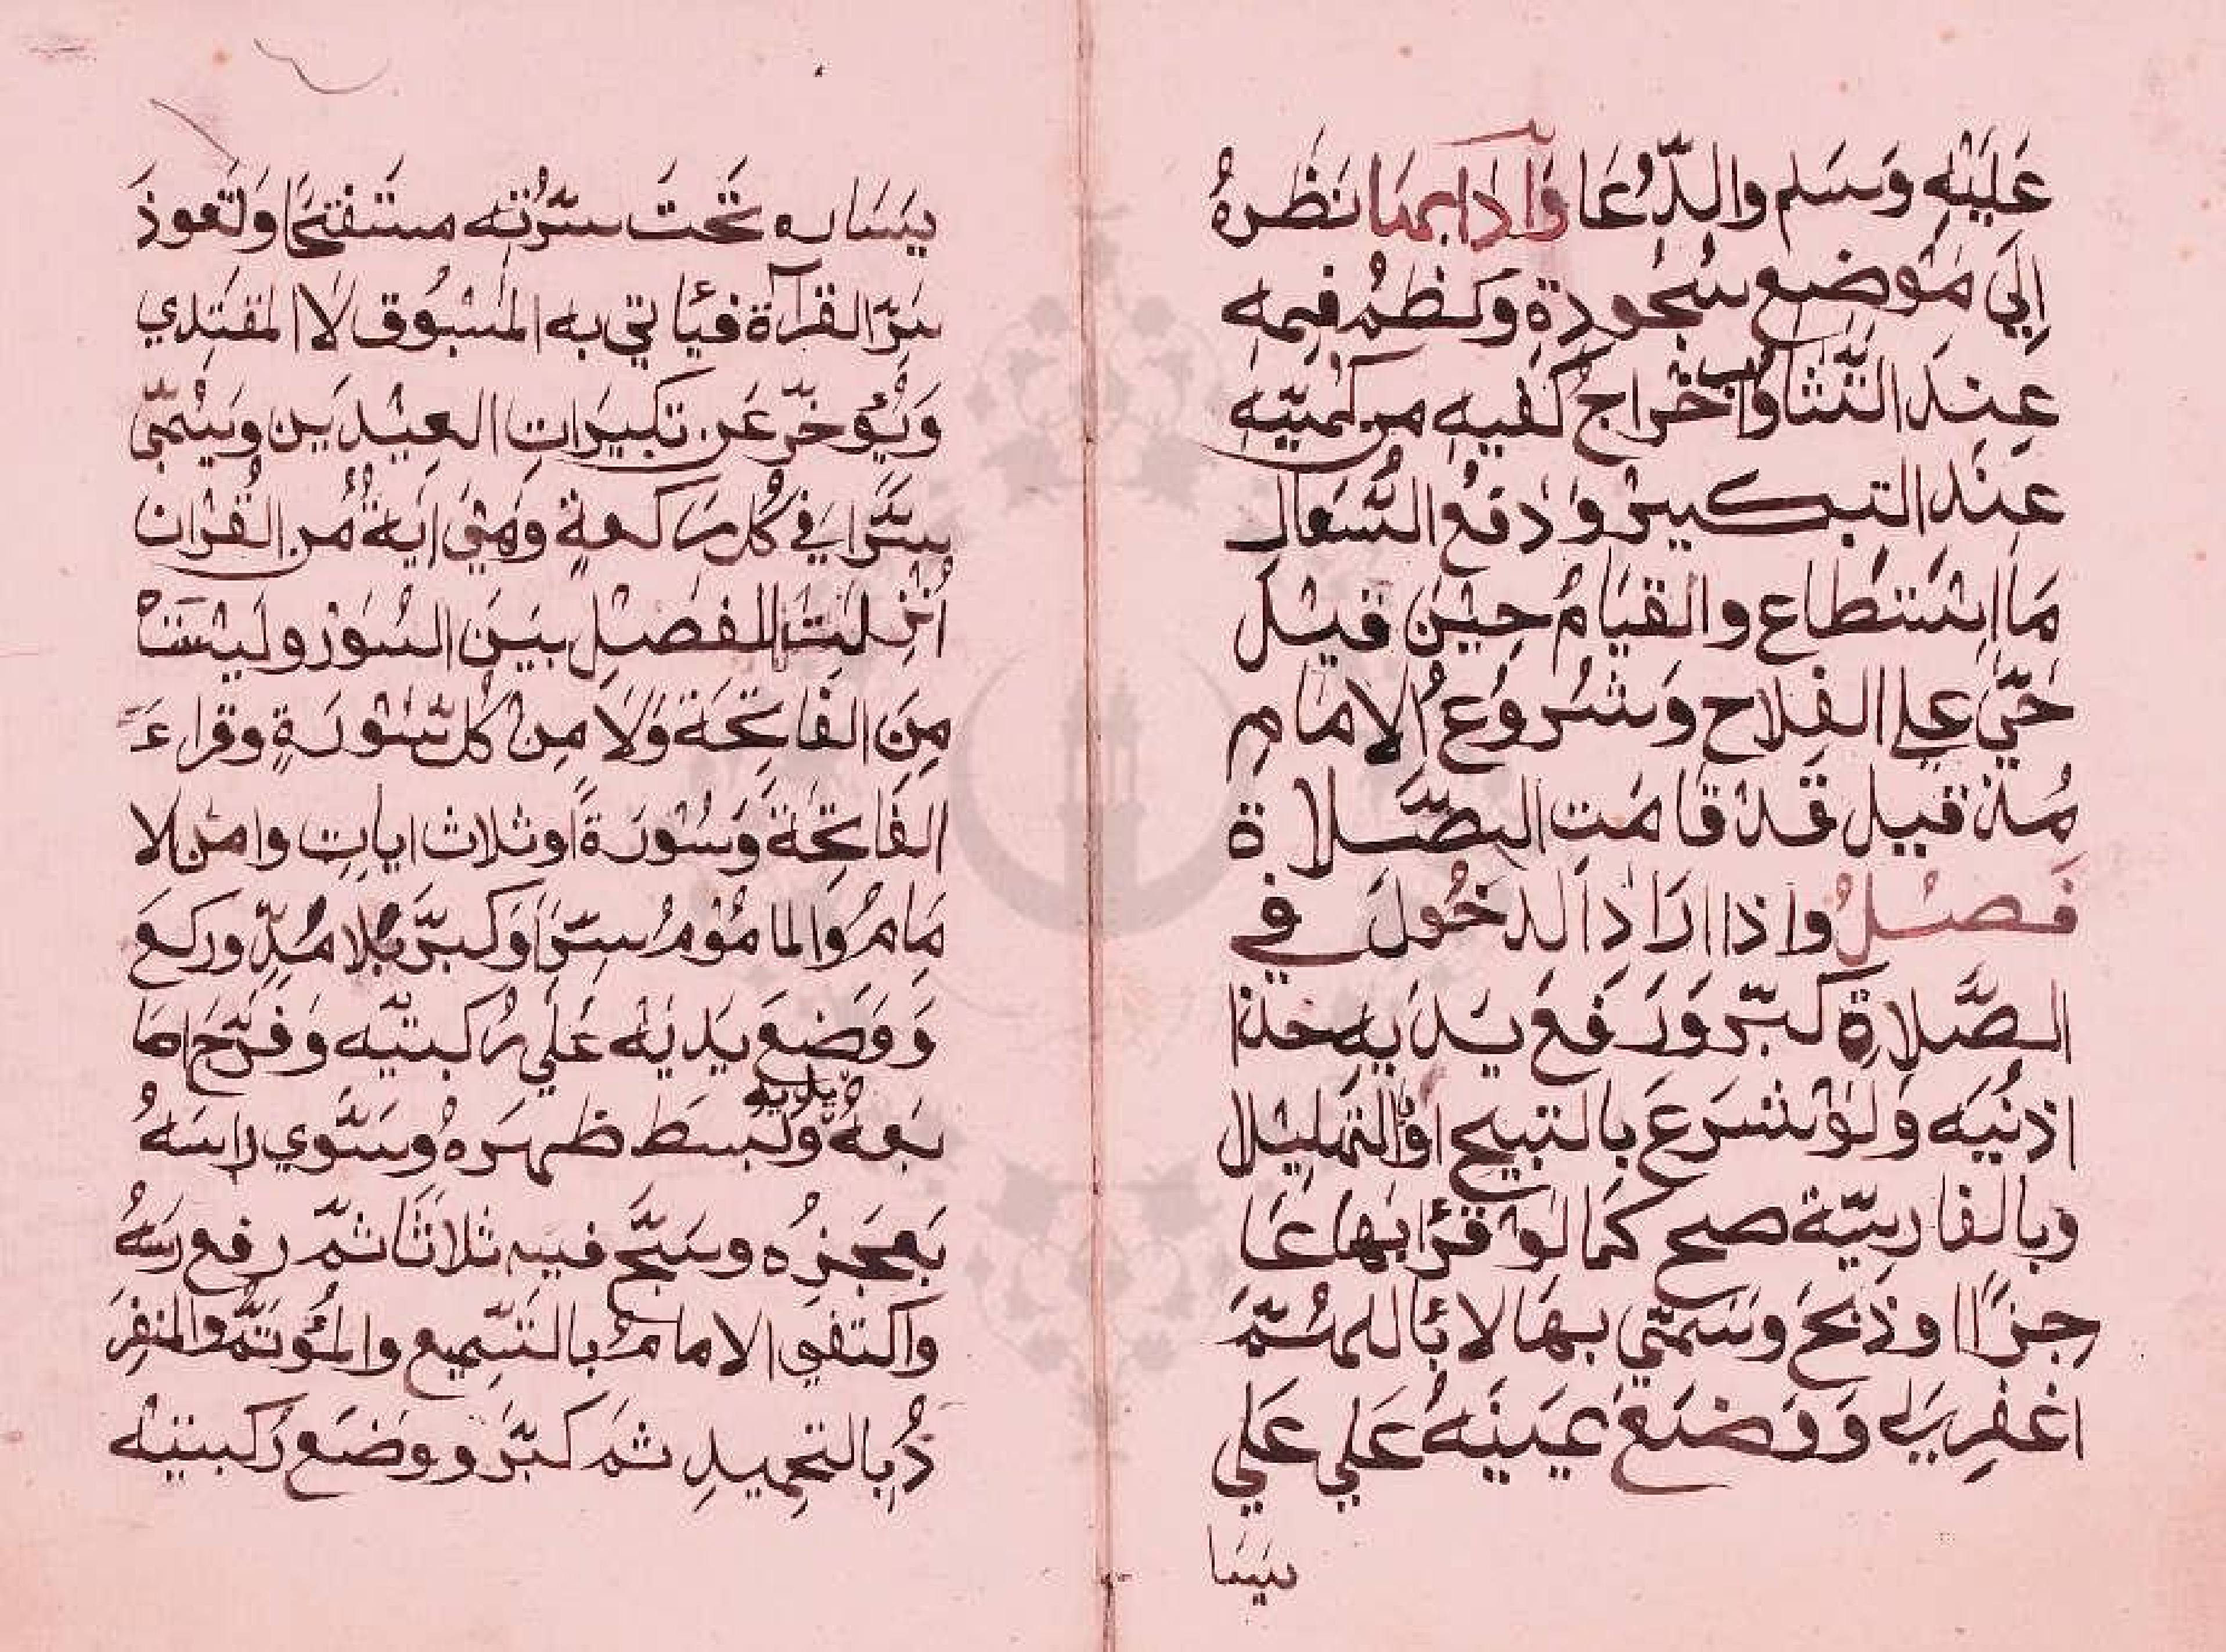 عَلَيْهِ وَسَلم والدُّعَا وَآدابهَا نَظَرهُ
إِلَي مَوْضِع سُجُودِهِ وَكظمُ فمِه
عِندَ التَّثَاوب اخْراج كَفيهِ من كميّهِ
عنِدَ التبكبير وَدفعُ السُّعال
مَا اسْتَطاع والقيَامُ حِيْنَ قيْل
حَيّ علي الفلاح وَشُروعُ الامام
مُذ قيل قدْ قامَت الصَّلاة
فَصْلُ واذا ارَادَ الدخُولَ في
الصَّلاةِ كبّر وَرَفعَ يَدَيه حذا
اذنيَه وَلوْ شَرعَ بالتبيح اوْ التهليْل
وبالفارسيّة صح كمَا لوْ قرأ بهاعَا
جزًا او ذبحَ وسَمّي بهَا لا بَاللهمُمَّ
اغفرلي وَوَضعَ يمَينَهُ عَلي عَلي
يسَا
يسَاره تحَتَ سرّتِه مستَفتحًا وَتَعوذَ
سِرّا القرآة فيأتي به المسْبُوق لا المقتدِي
وَيُؤخرّ عَن تكبيَراتِ العيْدَين وَيسْمّي
سِرًّا في كُل ركعةٍ وَهْيَ ايَةٌ مُن القُرْان
اُنزِلتَ للفصْلِ بيَن السُوَر وليْسَتْ
مِنَ الفَاتِحَة وَلاَ مِنْ كُل سُوْرَةٍ وقراءَ
الفَاتحَة وَسُوْرَةً اوثلاث اياتٍ وامنْ لا
مَامُ والمامُوْمُ سِرّاً وَكبرّ بُلا مُدٍّ وركعَ
وَوَضعَ يَديْه عَلي رُكبتيْه وَفرّجَ اصَا
بعهُ وَبَسَط ظهَرهُ وسَوّي رَاسَهُ
بعَجزُه وسَبّح فيه ثلاثًا ثمّ رفع رَسَهُ
واكتفي الامامُ بالتَسْميع والمؤتَمُّ والمنفِرَ
دُ بالتحميدِ ثمَ كبرّ ووضَع رَكبتيْه